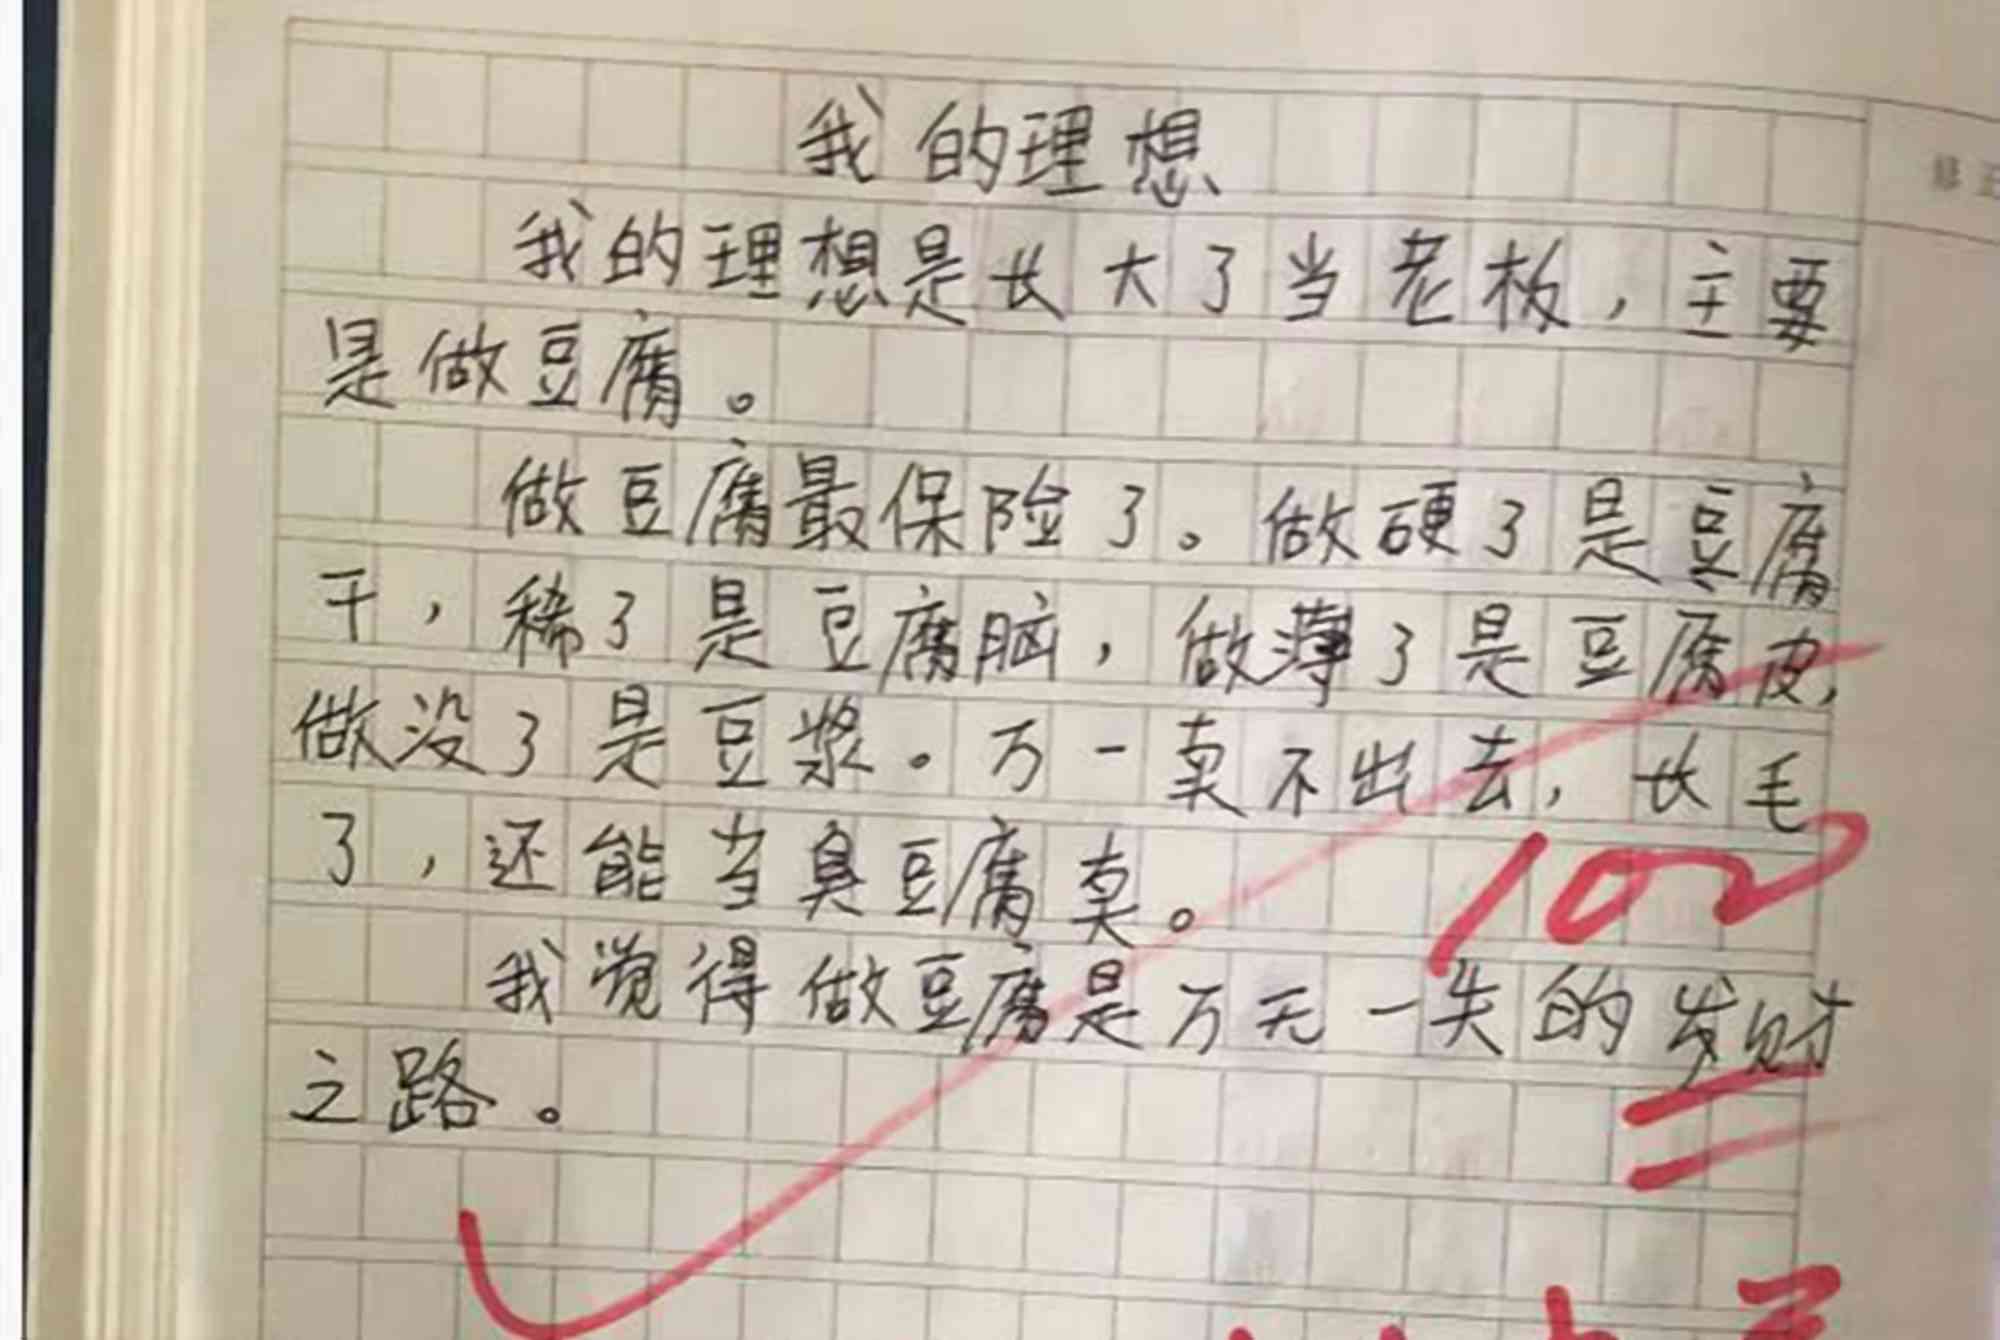 我的理想
修正
我的理想是长大了当老板，主要
是做豆腐。
做豆腐最保险了。做硬了是豆腐
干，稀了是豆腐脑，做薄了是豆腐皮，
做没了是豆浆。万一卖不出去，长毛
了，还能当臭豆腐卖。
100
我觉得做豆腐是万无一失的发财
之路。